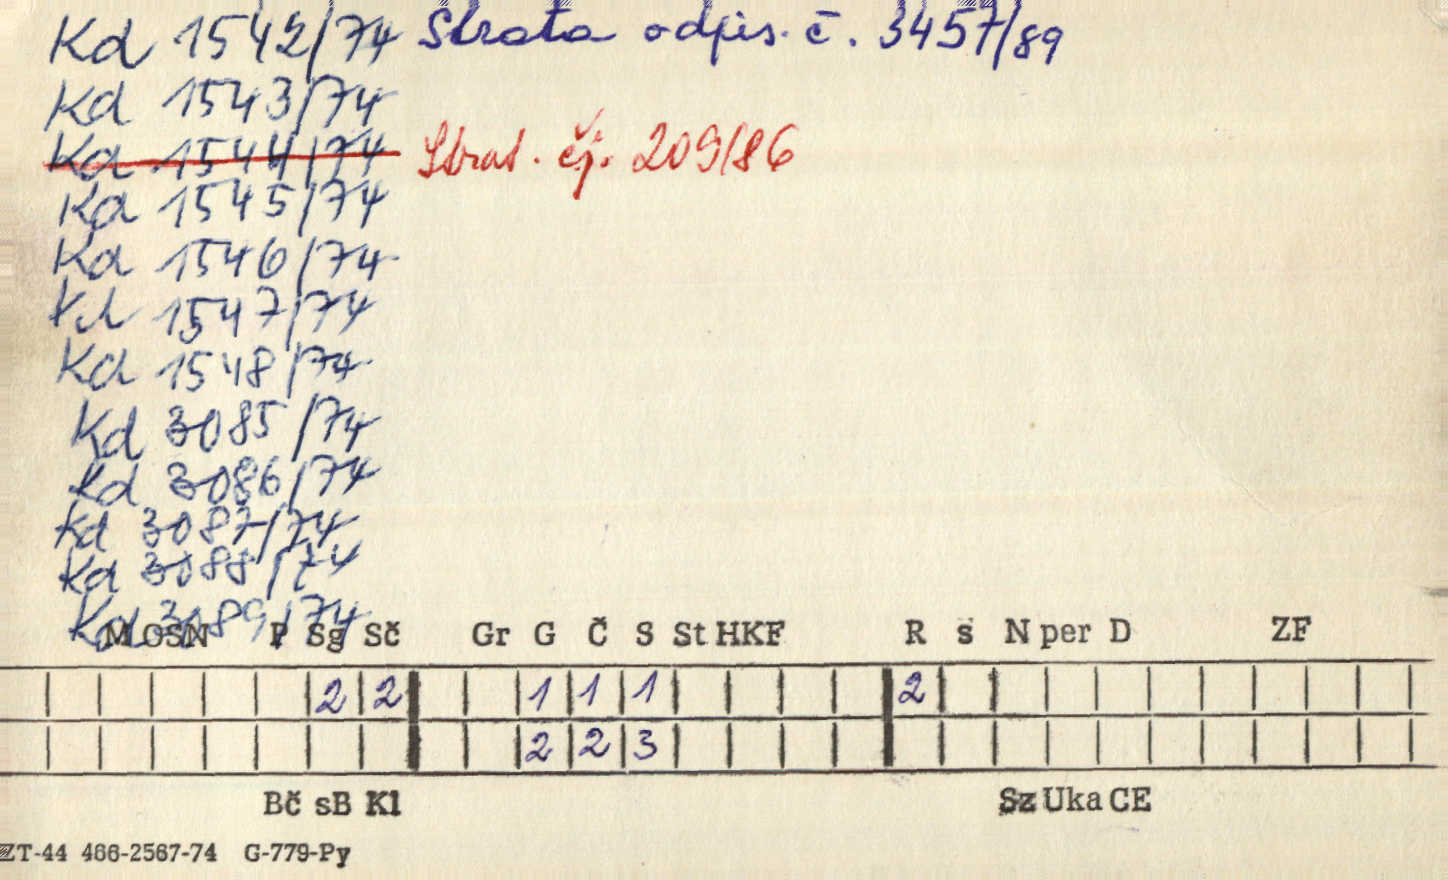 Kd 1542/74 Strata odpis. č. 3457/89
Kd 1543/74
Kd 1544/74 Strat. čj. 209/86
Kd 1545/74
Kd 1546/74
Kd 1547/74
Kd 1548/74
Kd 3085/74
Kd 3086/74
Kd 3087/74
Kd 3088/74
Kd 3089/74
M OSN P Sg Sč Gr G Č S St HKF R s N per D ZF
2 2 1 1 1 2
2 2 3
Bč sB Kl Sz Uka CE
ZT-44 466-2567-74 G-779-Py